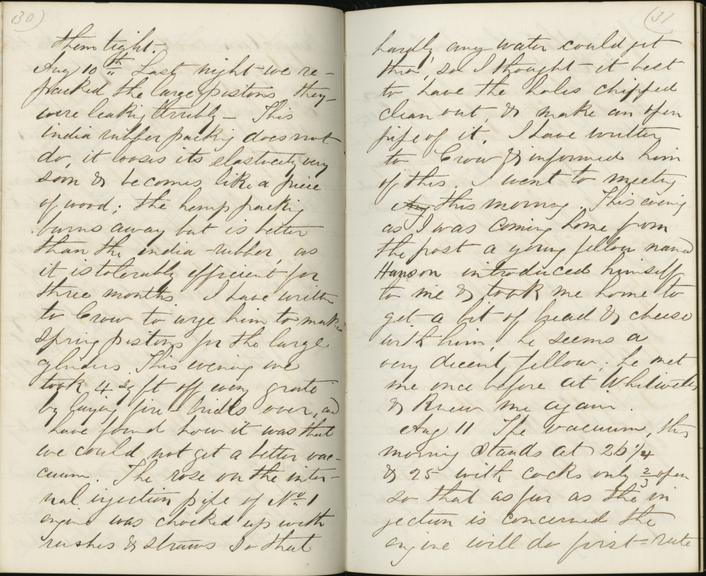 (30)
them tight.—
Aug 10th Last night we re-
packed the large pistons they
were leaking terribly — This
india rubber packing does not
do, it looses its elasticity very
soon & becomes like a piece
of wood; the hemp packing
burns away but is better
than the india-rubber, as
it is tolerably efficient for
three months. I have written
to Crow to urge him to make
spring pistons for the large
cylinders. This evening we
took 4 sq ft off every grate
by laying fire-bricks over, and
have found how it was that
we could not get a better vac-
cuum. The rose on the inter-
nal injection pipe of No. 1
engine was chocked up with
rushes & straws so that
(31)
hardly any water could get
thro', so I thought it best
to have the holes chipped
clean out, & make an open
pipe of it. I have written
to Crow & informed him
of this. I went to meeting
this morning. This evening
as I was coming home from
the post a young fellow named
Hanson introduced himself
to me & took me home to
get a bit of bread & cheese
with him, he seems a
very decent fellow; he met
me once before at
& knew me again.
Aug 11 The vacuum, this
morning stands at 26 1/4
& 25 with cocks only 2/3 open
so that as far as the in
jection is concerned the
engine will do first-rate